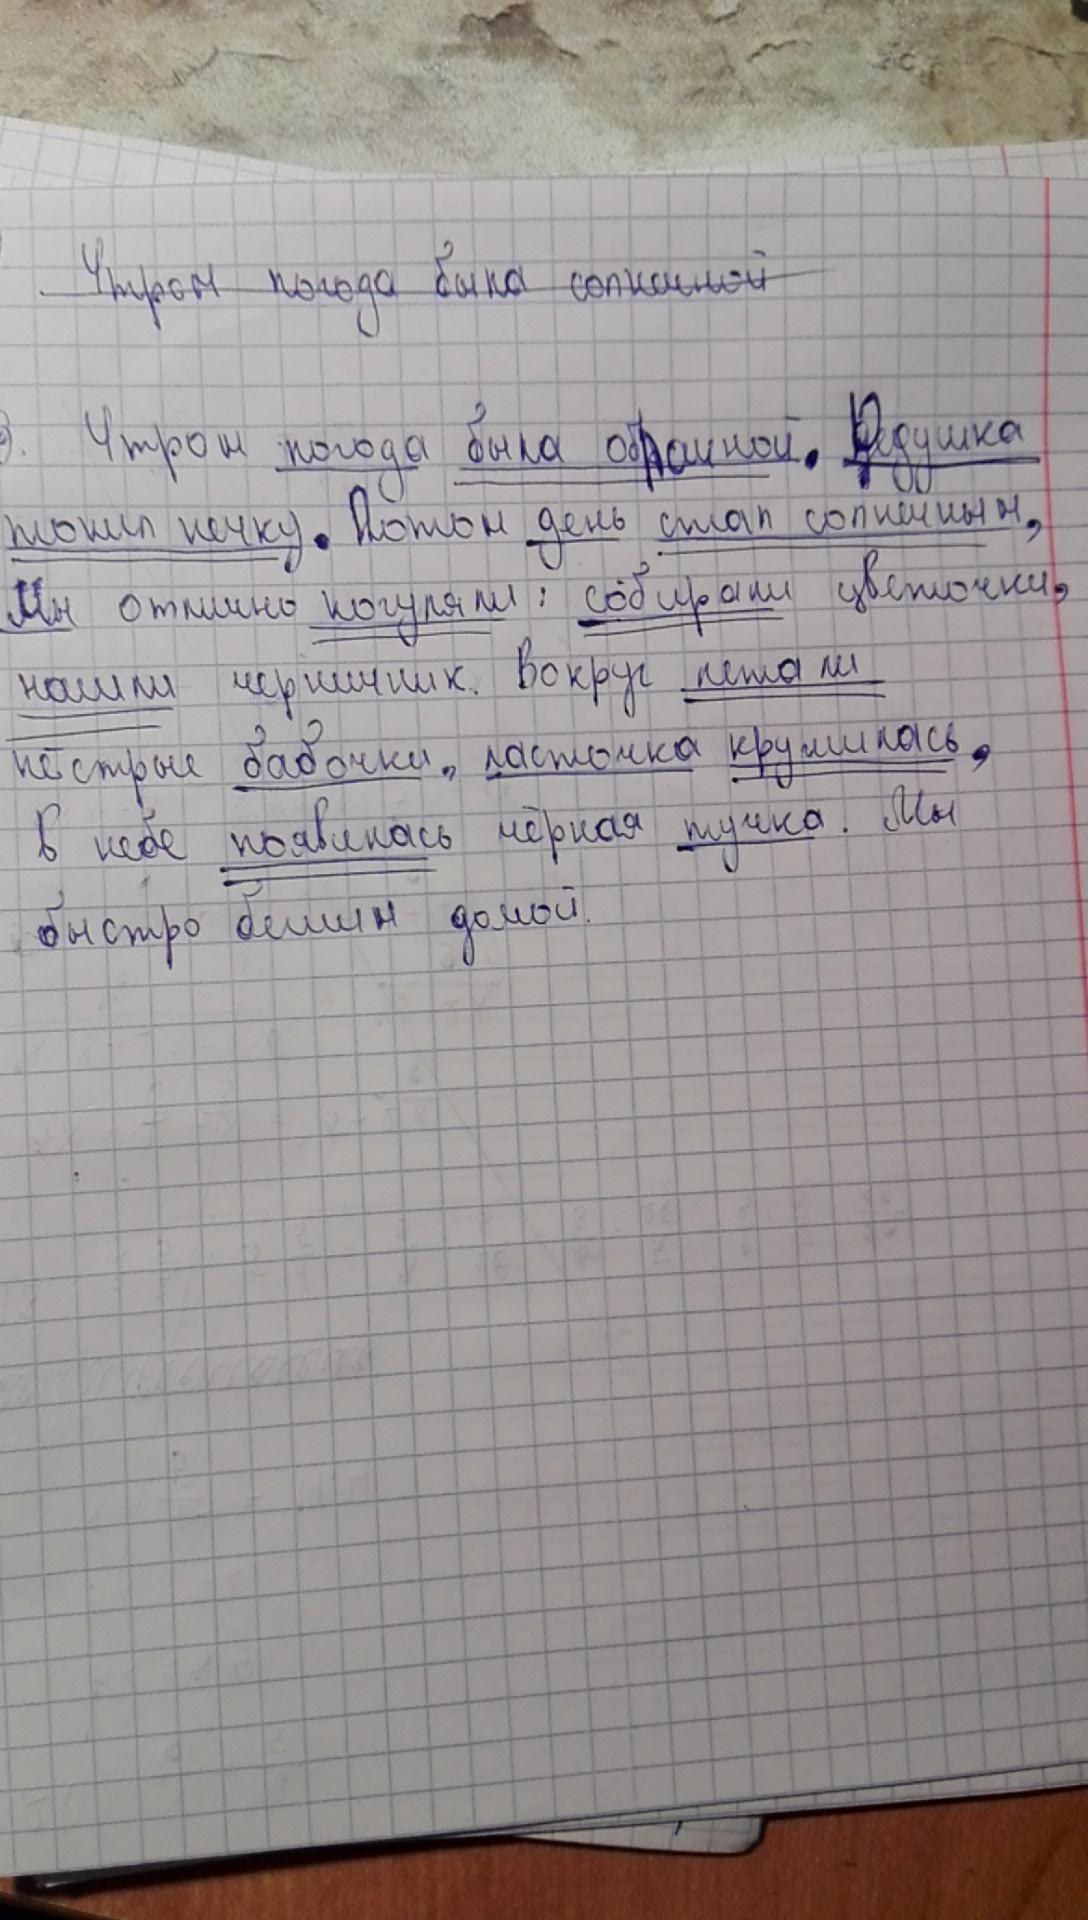 Утром погода была солнечной
3. Утром погода была облачной. Дедушка
топил печку. Потом день стал солнечным,
Мы отлично погуляли: собирали цветочки,
нашли черничник. Вокруг летали
пёстрые бабочки, ласточка кружилась,
В небе появилась чёрная тучка. Мы
быстро бежим домой.